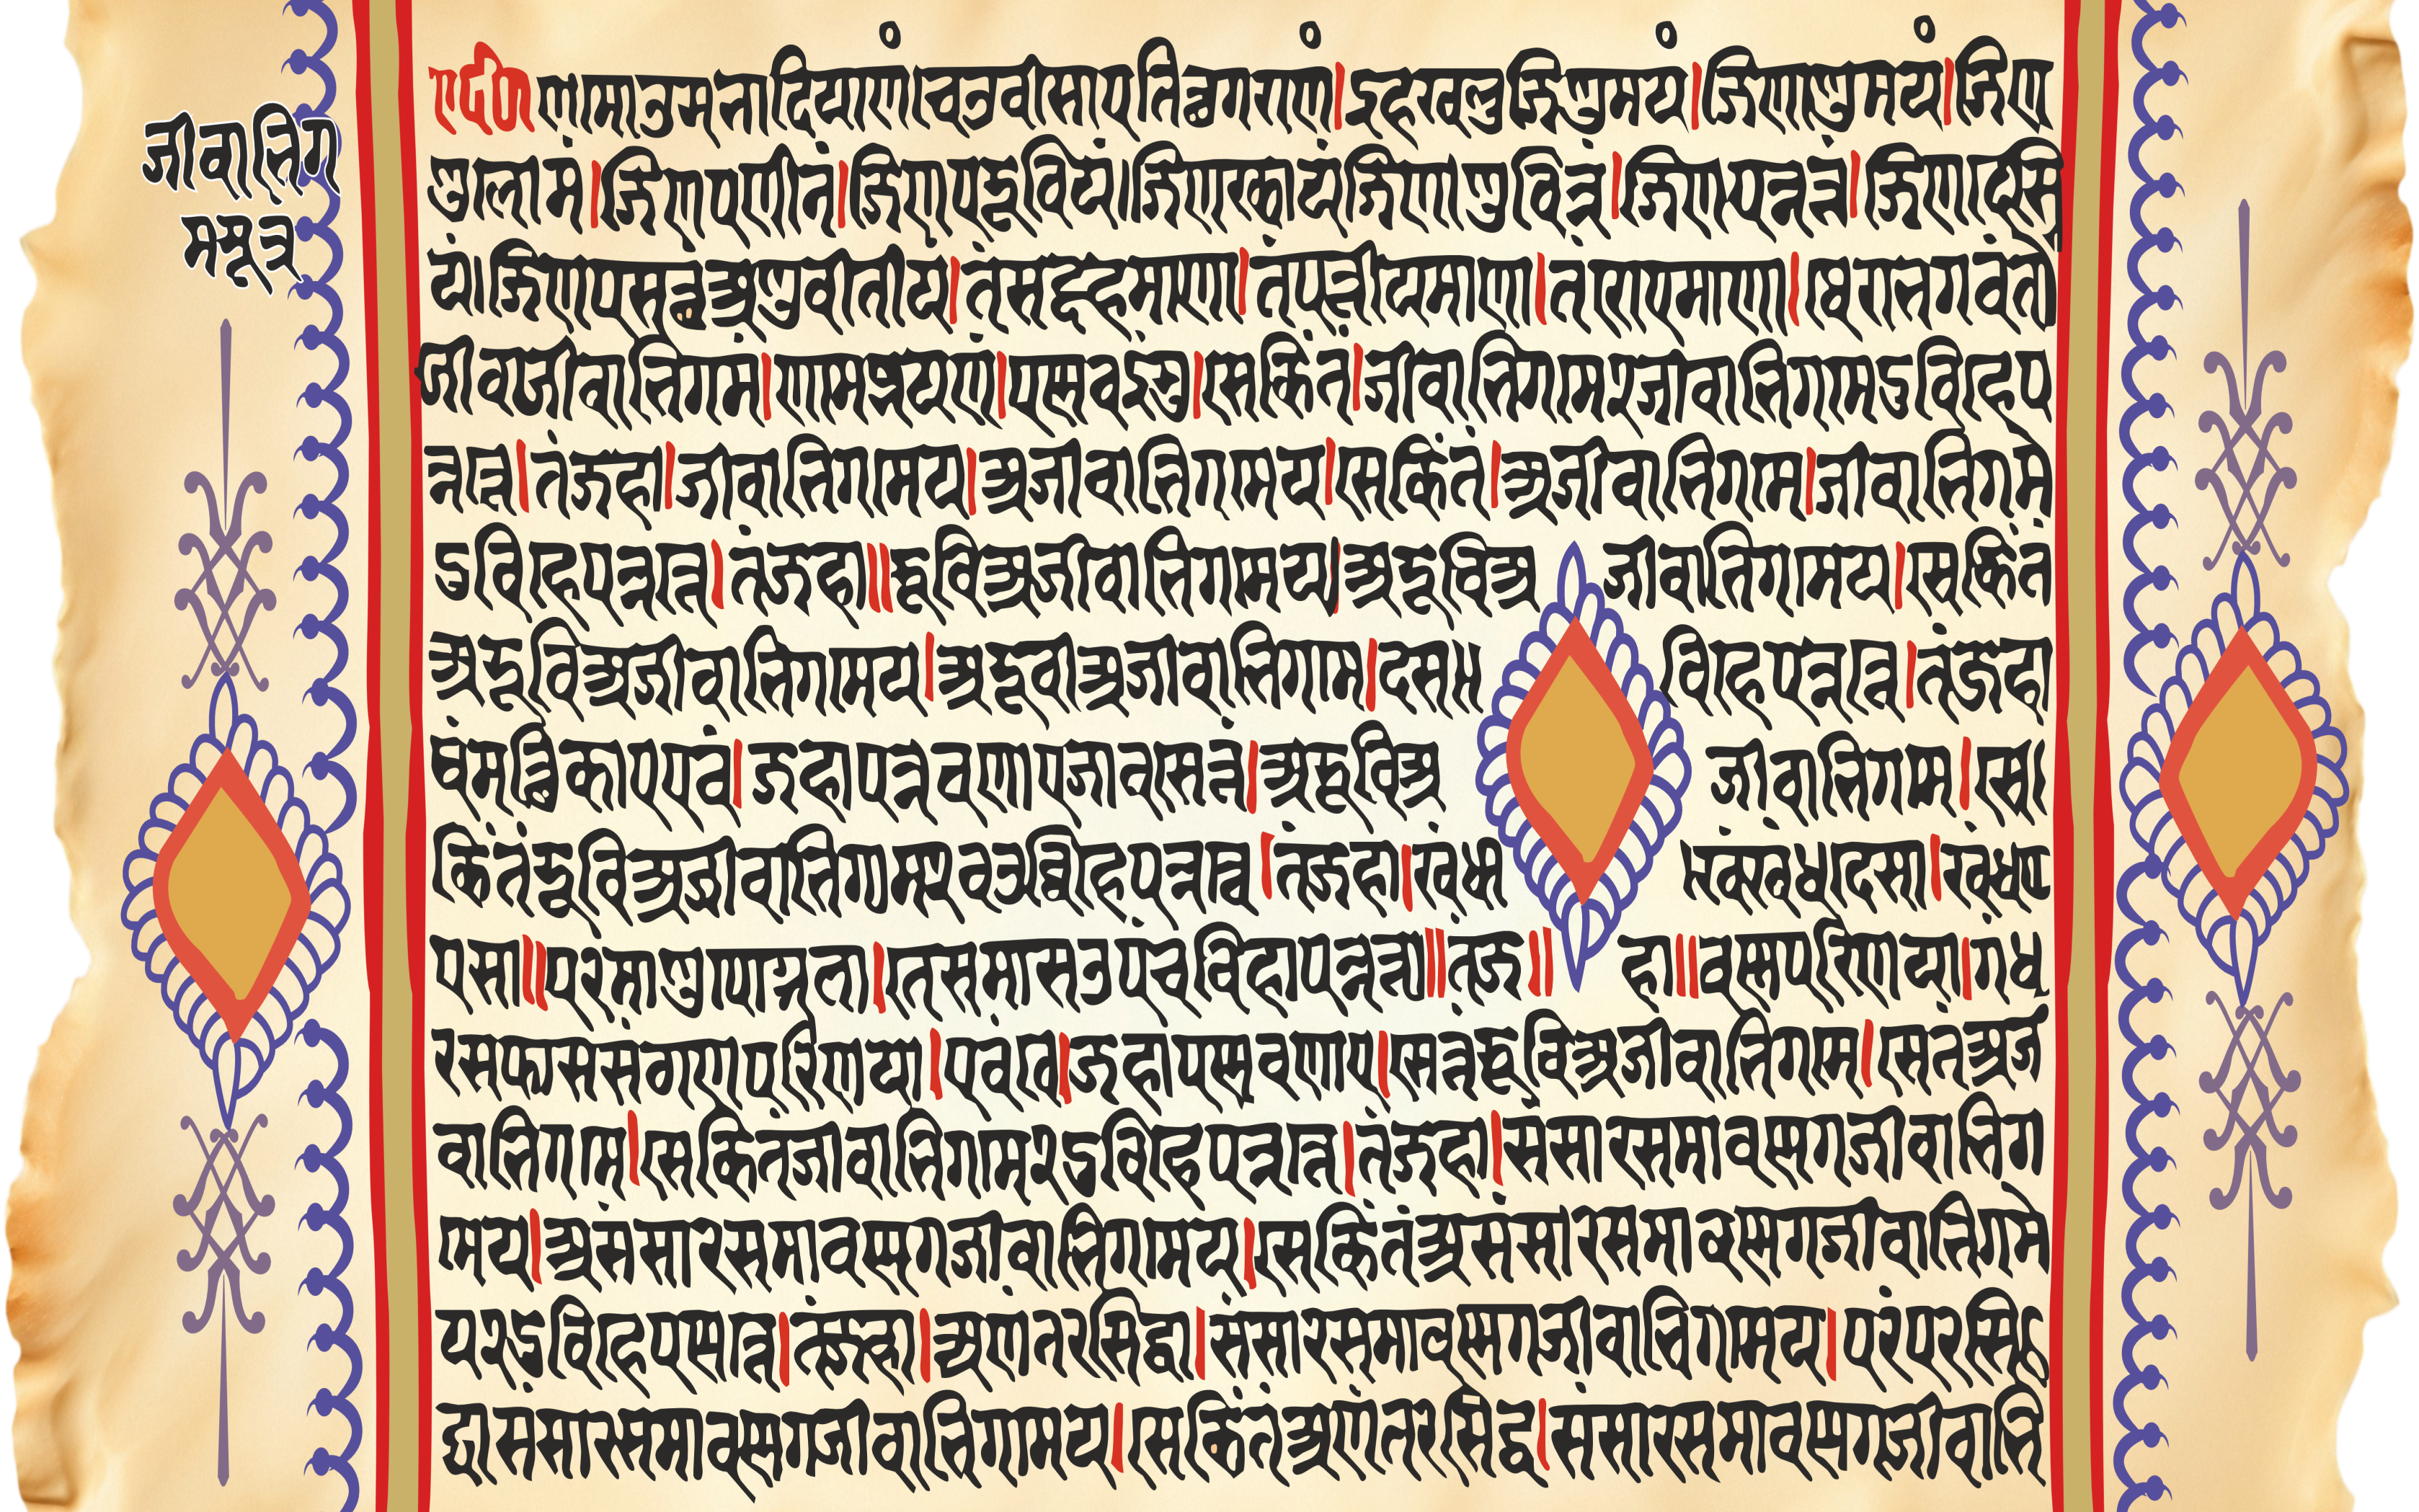 जीवाभिग
मसूत्र
णमो उसभादियाणं चउवीसाए तित्थगराणं । इह खलु जिणमयं । जिणाणुमयं । जिण
णुलोमं । जिणपणीतं । जिणपरूवियं । जिणक्खायं जिणाणुचिन्नं । जिणपन्नत्तं । जिणदेसि
यं । जिणपसत्थं अणुवीतीय । तं सद्दहमाणा । तं पत्तीयमाणा । तं रोएमाणा । थेरा भगवंतो
जीवाजीवाभिगमं । णामज्झयणं । पण्णवइंसु । से किं तं । जीवाभिगमे २ जीवाभिगमे दुविहे प
न्नत्ते । तं जहा । जीवाभिगमे य । अजीवाभिगमे य । से किं तं । अजीवाभिगमे । जीवाभिगमे
दुविहे पन्नत्ते । तं जहा ॥ रूविअजीवाभिगमे य । अरूविअ जीवाभिगमे य । से किं तं
अरूविअजीवाभिगमे य । अरूवीअजीवाभिगमे । दस विहे पन्नत्ते । तं जहा
धंमत्थिकाए एवं । जहा पन्नवणाए जाव सेत्तं । अरूविअ जीवाभिगमे । से
किं तं रूविअजीवाभिगमे २ चउव्विहे पन्नत्ते । तं जहा । खंधा खंधदेसा । खंधप्प
एसा ॥ परमाणुपोग्गला । ते समासउ पंचविहा पन्नत्ता ॥ तं ज ॥ हा ॥ वण्णपरिणया । गंध
रस फास संठाणपरिणया । एवं ते । जहा पण्णवणाए । सेत्तं रूविअजीवाभिगमे । सेतं अजी
वाभिगमे । से किं तं जीवाभिगमे २ दुविहे पन्नत्ते । तं जहा । संसारसमावण्णगजीवाभिग
मे य । असंसारसमावण्णगजीवाभिगमे य । से किं तं असंसारसमावण्णगजीवाभिगमे
य २ दुविहे पण्णत्ते । तं जहा । अणंतरसिद्धा । संसारसमावण्णगजीवाभिगमे य । परंपरसि
द्धा संसारसमावण्णगजीवाभिगमे य । से किं तं अणंतरसिद्ध । संसारसमावण्णगजीवाभि